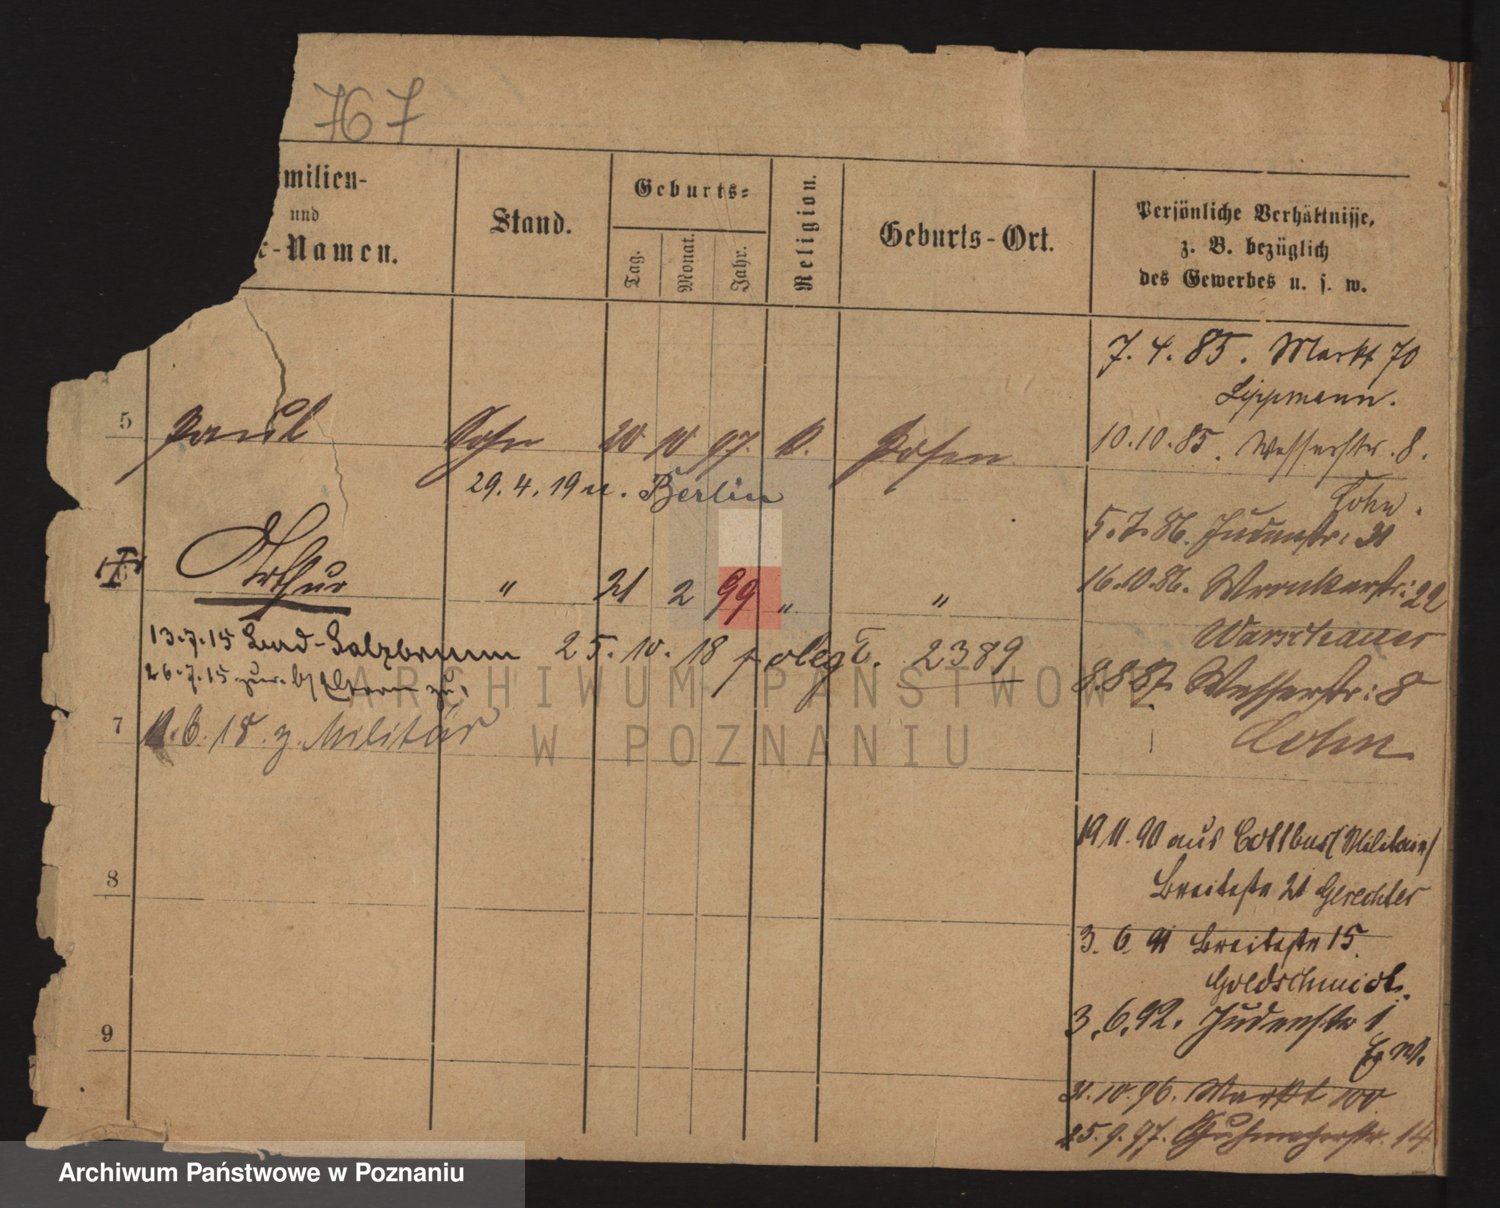 767
milien-
und
-Namen.
Stand.
Geburts-
Tag.
Monat.
Jahr.
Religion.
Geburts-Ort.
Persönliche Verhältnisse,
z. B. bezüglich
des Gewerbes u. s. w.
7. 4. 85. Markt 70
Lippmann.
5 Paul Sohn 20 10 97. Posen
10. 10. 85. Wasserstr. 8.
Cohn.
29. 4. 19 Berlin
5. 7. 86. Judenstr. 31
Arthur " 21 2 99 " "
16. 10. 86. Wronkerstr: 22
Warschauer
13.7.15 Bad-Salzbrunn 25. 10. 18 poleg T. 2389
26.7.15 zur.
8.8 87. Wasserstr: 8
Cohn
7 11. 6. 18. z. Militär
19 11. 90 aus Cottbus (Militair)
Breitestr 21 Gerechter
8
3. 6. 91 Breitestr 15.
Goldschmidt.
3. 6. 92. Judenstr 1
9
31. 10. 96. Markt 100
25. 9. 97. Schuhmacherstr. 14
ARCHIWUM PAŃSTWOWE
W POZNANIU
Archiwum Państwowe w Poznaniu